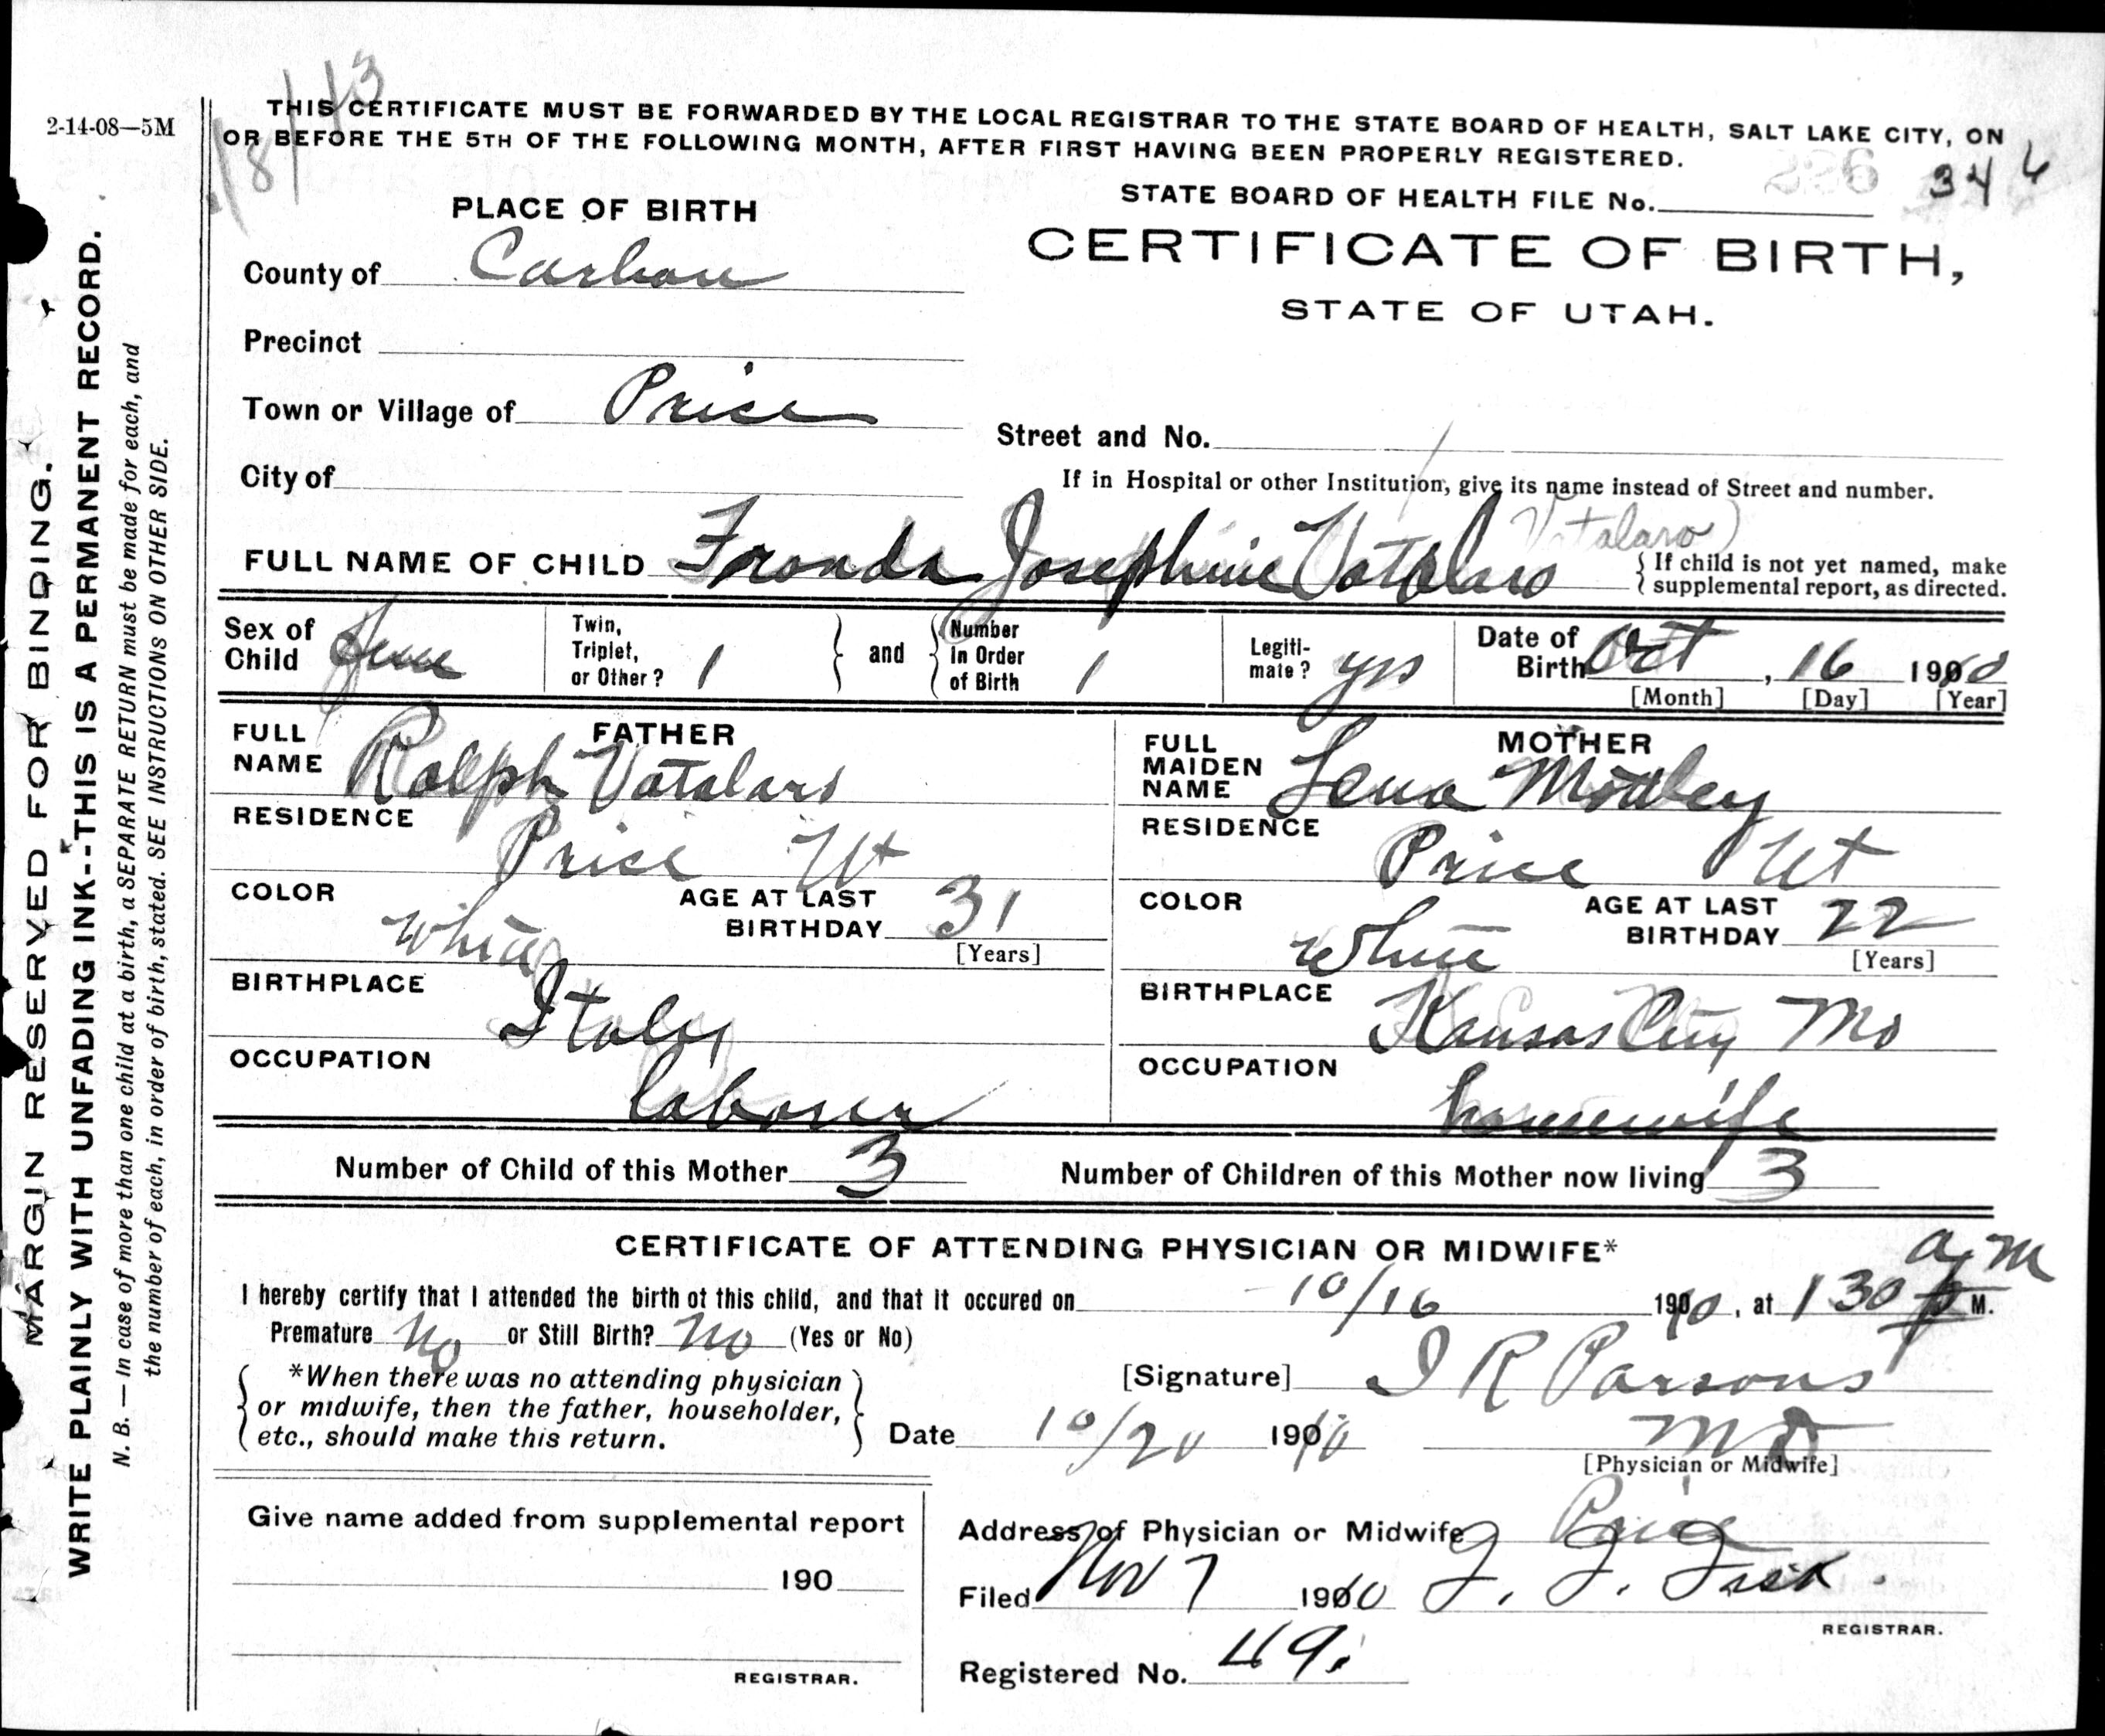 2-14-08—5M
THIS CERTIFICATE MUST BE FORWARDED BY THE LOCAL REGISTRAR TO THE STATE BOARD OF HEALTH, SALT LAKE CITY, ON
OR BEFORE THE 5TH OF THE FOLLOWING MONTH, AFTER FIRST HAVING BEEN PROPERLY REGISTERED.
MARGIN RESERVED FOR BINDING.
WRITE PLAINLY WITH UNFADING INK--THIS IS A PERMANENT RECORD.
N. B. — In case of more than one child at a birth, a SEPARATE RETURN must be made for each, and
the number of each, in order of birth, stated. SEE INSTRUCTIONS ON OTHER SIDE.
STATE BOARD OF HEALTH FILE No. 346
PLACE OF BIRTH
CERTIFICATE OF BIRTH,
STATE OF UTAH.
County of Carbon
Precinct
Town or Village of Price
Street and No.
City of
If in Hospital or other Institution, give its name instead of Street and number.
Vatalaro)
FULL NAME OF CHILD Fronda Josephine Vatalaro
{ If child is not yet named, make
supplemental report, as directed.
Sex of Child Feme
Twin, Triplet, or Other? 1
and
Number in Order of Birth 1
Legiti-mate? yes
Date of Birth Oct, 16 1910
[Month] [Day] [Year]
FATHER
FULL NAME Ralph Vatalaro
RESIDENCE
Price Ut
COLOR White
AGE AT LAST BIRTHDAY 31
[Years]
BIRTHPLACE
Italy
OCCUPATION
laborer
MOTHER
FULL MAIDEN NAME Lena Mottley
RESIDENCE
Price Ut
COLOR White
AGE AT LAST BIRTHDAY 22
[Years]
BIRTHPLACE
Kansas City Mo
OCCUPATION
housewife
Number of Child of this Mother 3
Number of Children of this Mother now living 3
CERTIFICATE OF ATTENDING PHYSICIAN OR MIDWIFE*
a m
I hereby certify that I attended the birth of this child, and that it occured on 10/16 1910, at 130 p M.
Premature No or Still Birth? No (Yes or No)
*When there was no attending physician
or midwife, then the father, householder,
etc., should make this return.
[Signature] I R Parsons
Date 10/20 1910 MD
[Physician or Midwife]
Give name added from supplemental report
190
REGISTRAR.
Address of Physician or Midwife Price
Filed Nov 7 1910
REGISTRAR.
Registered No. 49